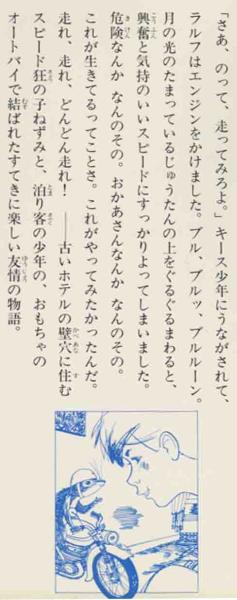 「さあ、のって、走ってみろよ。」キース少年にうながされて、
ラルフはエンジンをかけました。ブル、ブルッ、ブルルーン。
月の光のたまっているじゅうたんの上をぐるぐるまわると、
興奮と気持のいいスピードにすっかりよってしまいました。
危険なんか なんのその。おかあさんなんか なんのその。
これが生きてるってことさ。これがやってみたかったんだ。
走れ、走れ、どんどん走れ! ——古いホテルの壁穴に住む
スピード狂の子ねずみと、泊り客の少年の、おもちゃの
オートバイで結ばれたすてきに楽しい友情の物語。